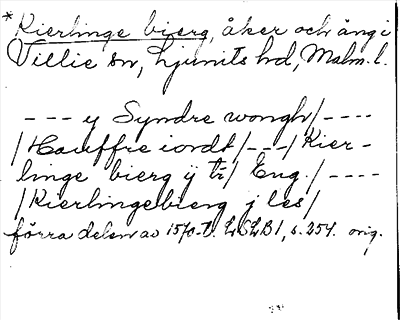 *Kierlinge bierg, åker och äng i
Villie sn, Ljunits hd, Malm. l.
--- y Syndre wongh/----
/Hauffre iordt/---/Kier-
linge bierg ÿ tr/ Eng/----
/Kierlingebierg j les/
förra delen av 1570-t. LSLB1, s. 254. orig.